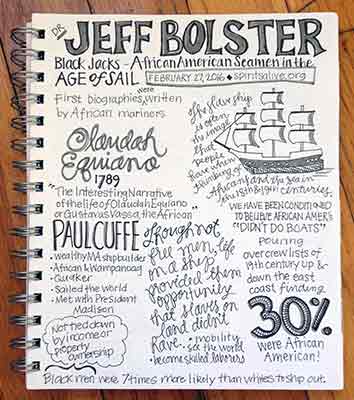 DR. JEFF BOLSTER
Black Jacks - African American Seamen in the
AGE OF SAIL
FEBRUARY 27, 2016 • spiritsalive.org
First biographies were written
by African mariners
Olaudah
Equiano
1789
"The Interesting Narrative
of the life of Olaudah Equiano
or Gustavus Vassa, the African"
The slave ship
is often
the image
that
people
have when
thinking of
Africans and the sea in
the 18th & 19th centuries.
WE HAVE BEEN CONDITIONED
TO BELIEVE AFRICAN AMER'S
"DIDN'T DO BOATS"
PAUL CUFFE
• wealthy MA shipbuilder
• African & Wampanoag
• Quaker
• Sailed the world
• Met with President
Madison
Not tied down
by income or
property
ownership
Though not
free men, life
on a ship
provided them
opportunity
that slaves on
land didn't
have.
• mobility
• see the world
• become skilled laborers
Pouring
over crew lists of
19th century up &
down the east
coast finding
30%
were African
American!
Black men were 7 times more likely than whites to ship out.